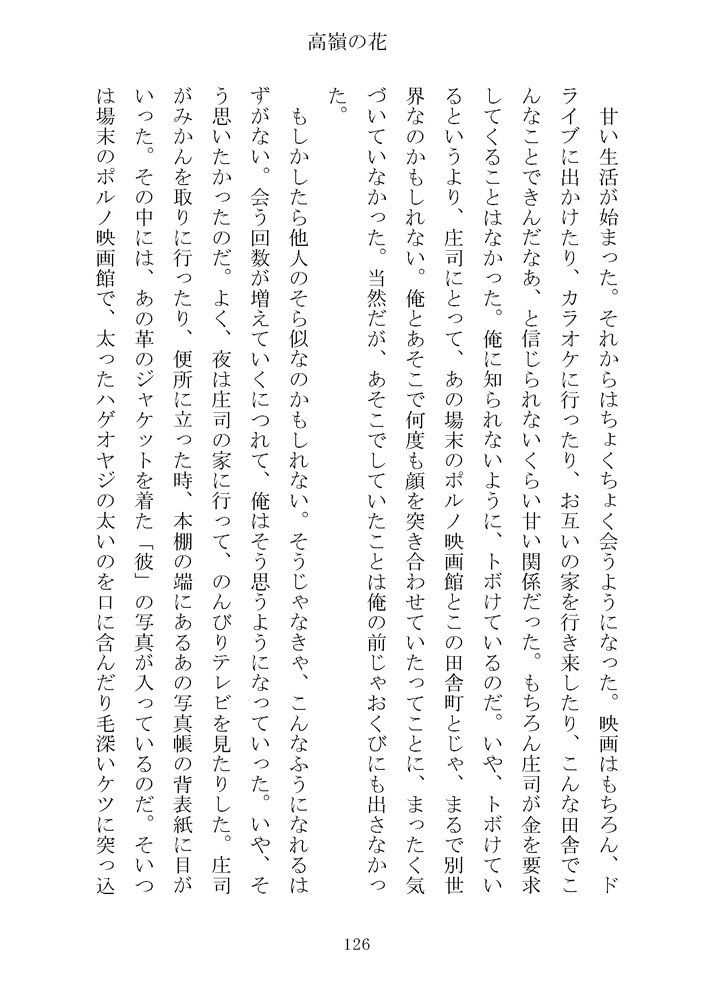 高嶺の花
　甘い生活が始まった。それからはちょくちょく会うようになった。映画はもちろん、ド
ライブに出かけたり、カラオケに行ったり、お互いの家を行き来したり、こんな田舎でこ
んなことできんだなあ、と信じられないくらい甘い関係だった。もちろん庄司が金を要求
してくることはなかった。俺に知られないように、トボけているのだ。いや、トボけてい
るというより、庄司にとって、あの場末のポルノ映画館とこの田舎町とじゃ、まるで別世
界なのかもしれない。俺とあそこで何度も顔を突き合わせていたってことに、まったく気
づいていなかった。当然だが、あそこでしていたことは俺の前じゃおくびにも出さなかっ
た。
　もしかしたら他人のそら似なのかもしれない。そうじゃなきゃ、こんなふうになれるは
ずがない。会う回数が増えていくにつれて、俺はそう思うようになっていった。いや、そ
う思いたかったのだ。よく、夜は庄司の家に行って、のんびりテレビを見たりした。庄司
がみかんを取りに行ったり、便所に立った時、本棚の端にあるあの写真帳の背表紙に目が
いった。その中には、あの革のジャケットを着た「彼」の写真が入っているのだ。そいつ
は場末のポルノ映画館で、太ったハゲオヤジの太いのを口に含んだり毛深いケツに突っ込
126